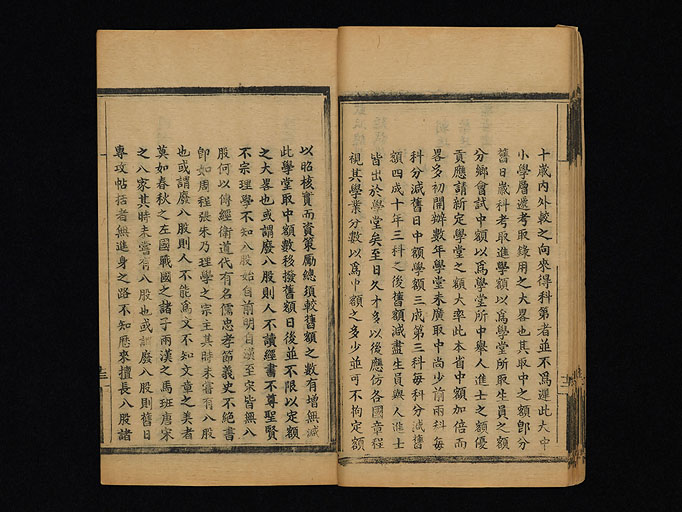 十歲內外較之向來得科第者並不爲遲此大中
小學層遞考取錄用之大畧也其取中之額卽分
舊日歲科考取進學額以爲學堂所取生員之額
分鄉會試中額以爲學堂所中舉人進士之額優
貢應請新定學堂之額大率此本省中額加倍而
畧多初開辦數年學堂未廣取中尚少前兩科每
科分減舊日中額學額三成第三科每科分減舊
額四成十年三科之後舊額減盡生員與人進士
皆出於學堂矣至日久才多以後應仿各國章程
視其學業分數以爲中額之多少並可不拘定額
以昭核實而資策勵總須較舊額之數有增無減
此學堂取中額數移撥舊額日後並不限以定額
之大畧也或謂廢八股則人不讀經書不尊聖賢
不宗理學不知八股始自前明自漢至宋皆無八
股何以傳經衛道代有名儒忠孝節義史不絕書
卽如周程張朱乃理學之宗主其時未嘗有八股
也或謂廢八股則人不能爲文不知文章之美者
莫如春秋之左國戰國之諸子兩漢之馬班唐宋
之八家其時未嘗有八股也或謂廢八股則舊日
專攻帖括者無進身之路不知歷來擅長八股諸